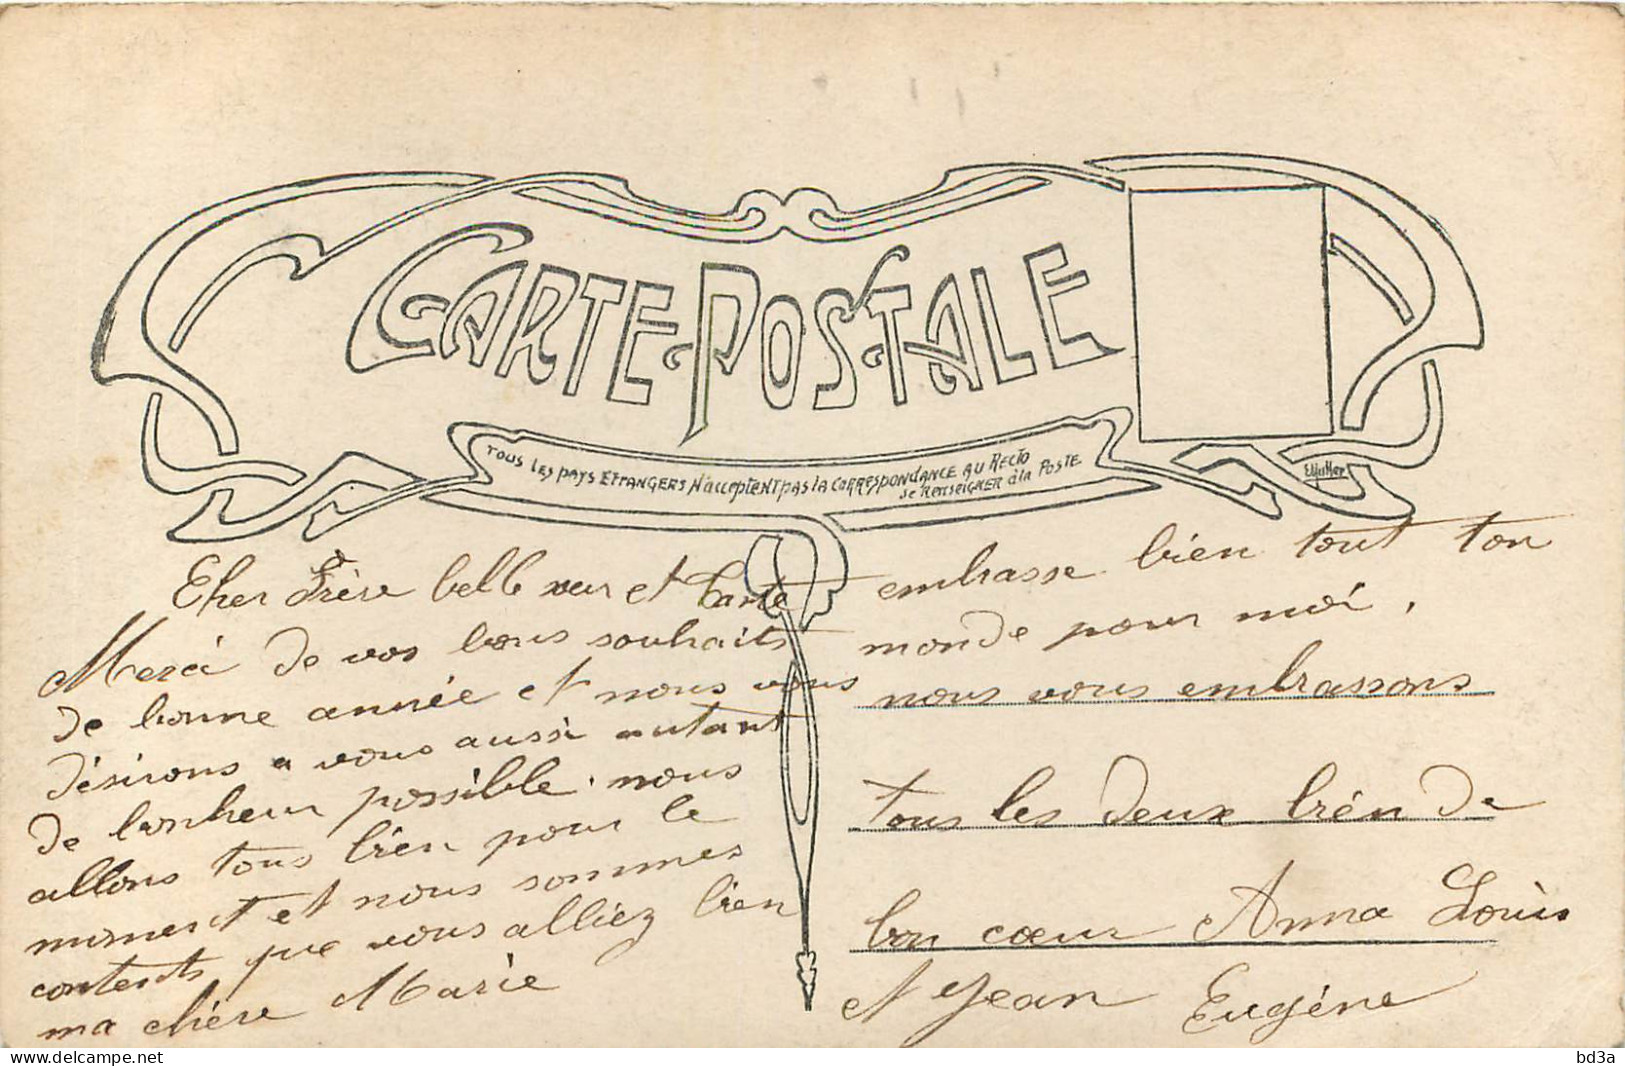 CARTE-POSTALE
TOUS LES PAYS ETRANGERS N'acceptent pas la CORRESPONDANCE AU RECTO
se RENSEIGNER à la POSTE
Cher Frère belle seur et Tante
Merci de vos bons souhaits
de bonne année et nous vous
désirons a vous aussi autant
de bonheur possible. nous
allons tous bien pour le
moment et nous sommes
contents que vous alliez bien
ma chère Marie
embrasse bien tout ton
monde pour moi.
nous vous embrassons
tous les deux bien de
bon cœur Anna Louis
et Jean Eugène
delcampe.net
bd3a